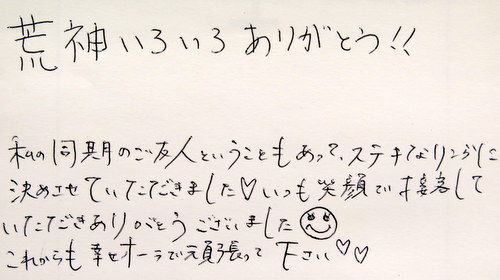 荒神いろいろありがとう!!
私の同期のご友人ということもあって、ステキなリングに
決めさせていただきました♡いつも笑顔で接客して
いただきありがとうございました
これからも幸せオーラで頑張って下さい♡♡